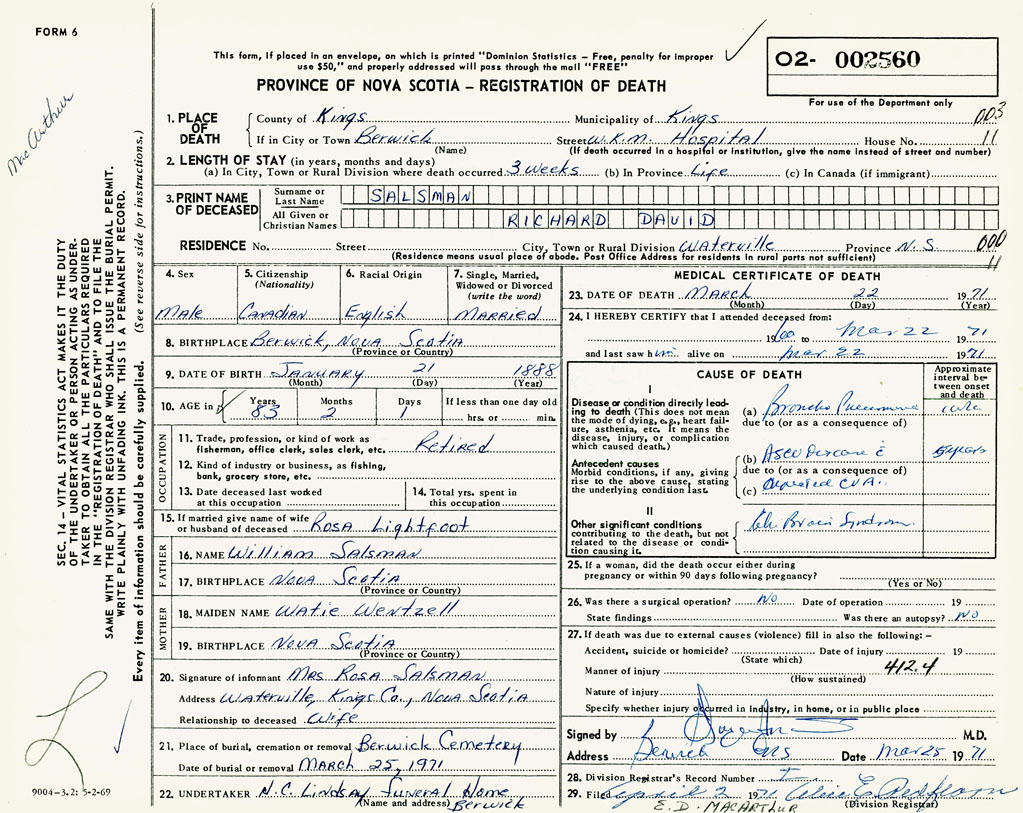 FORM 6
MacArthur
This form, if placed in an envelope, on which is printed "Dominion Statistics – Free, penalty for improper
use $50," and properly addressed will pass through the mail "FREE"
02- 002560
For use of the Department only
PROVINCE OF NOVA SCOTIA – REGISTRATION OF DEATH
003
11
1. PLACE OF DEATH
County of Kings Municipality of Kings
If in City or Town Berwick Street W.K.M. Hospital House No.
(Name) (If death occurred in a hospital or institution, give the name instead of street and number)
2. LENGTH OF STAY (in years, months and days)
(a) In City, Town or Rural Division where death occurred 3 weeks (b) In Province Life (c) In Canada (if immigrant)
3. PRINT NAME OF DECEASED
Surname or Last Name SALSMAN
All Given or Christian Names RICHARD DAVID
RESIDENCE No. Street City, Town or Rural Division Waterville Province N.S.
000
11
(Residence means usual place of abode. Post Office Address for residents in rural parts not sufficient)
4. Sex
Male
5. Citizenship
(Nationality)
Canadian
6. Racial Origin
English
7. Single, Married, Widowed or Divorced
(write the word)
Married
8. BIRTHPLACE Berwick, Nova Scotia
(Province or Country)
9. DATE OF BIRTH January 21 1888
(Month) (Day) (Year)
10. AGE in Years Months Days If less than one day old
83 2 1 hrs. or min.
OCCUPATION
11. Trade, profession, or kind of work as
fisherman, office clerk, sales clerk, etc. Retired
12. Kind of industry or business, as fishing,
bank, grocery store, etc.
13. Date deceased last worked
at this occupation
14. Total yrs. spent in
this occupation
15. If married give name of wife
or husband of deceased Rosa Lightfoot
FATHER
16. NAME William Salsman
17. BIRTHPLACE Nova Scotia
(Province or Country)
MOTHER
18. MAIDEN NAME Watie Wentzell
19. BIRTHPLACE Nova Scotia
(Province or Country)
20. Signature of informant Mrs Rosa Salsman
Address Waterville, Kings Co., Nova Scotia
Relationship to deceased Wife
21. Place of burial, cremation or removal Berwick Cemetery
Date of burial or removal March 25, 1971
22. UNDERTAKER N.C. Lindsay Funeral Home
(Name and address) Berwick
MEDICAL CERTIFICATE OF DEATH
23. DATE OF DEATH March 22 1971
(Month) (Day) (Year)
24. I HEREBY CERTIFY that I attended deceased from:
1960 to Mar 22 1971
and last saw him alive on Mar 22 1971
CAUSE OF DEATH
Approximate interval between onset and death
I
Disease or condition directly leading to death (This does not
mean the mode of dying, e.g., heart failure, asthenia, etc. It means the
disease, injury, or complication
which caused death.)
(a) Broncho Pneumonia
due to (or as a consequence of)
Antecedent causes
Morbid conditions, if any, giving
rise to the above cause, stating
the underlying condition last.
(b) ASCV Disease c̄ 5 years
due to (or as a consequence of)
(c) repeated CVA.
II
Other significant conditions
contributing to the death, but not
related to the disease or condition causing it.
Ch. Brain Syndrome
25. If a woman, did the death occur either during
pregnancy or within 90 days following pregnancy?
(Yes or No)
26. Was there a surgical operation? No Date of operation 19
State findings Was there an autopsy? No
27. If death was due to external causes (violence) fill in also the following: –
Accident, suicide or homicide? Date of injury 19
(State which)
412.4
Manner of injury
(How sustained)
Nature of injury
Specify whether injury occurred in industry, in home, or in public place
Signed by M.D.
Address Berwick NS Date Mar 25 1971
28. Division Registrar's Record Number
29. Filed April 2 1971
(Division Registrar)
E. D. MACARTHUR
SEC. 14 – VITAL STATISTICS ACT MAKES IT THE DUTY
OF THE UNDERTAKER OR PERSON ACTING AS UNDER-
TAKER TO OBTAIN ALL THE PARTICULARS REQUIRED
IN THE "REGISTRATION OF DEATH" AND TO FILE THE
SAME WITH THE DIVISION REGISTRAR WHO SHALL ISSUE THE BURIAL PERMIT.
WRITE PLAINLY WITH UNFADING INK. THIS IS A PERMANENT RECORD.
Every item of information should be carefully supplied. (See reverse side for instructions.)
9004-3.2: 5-2-69